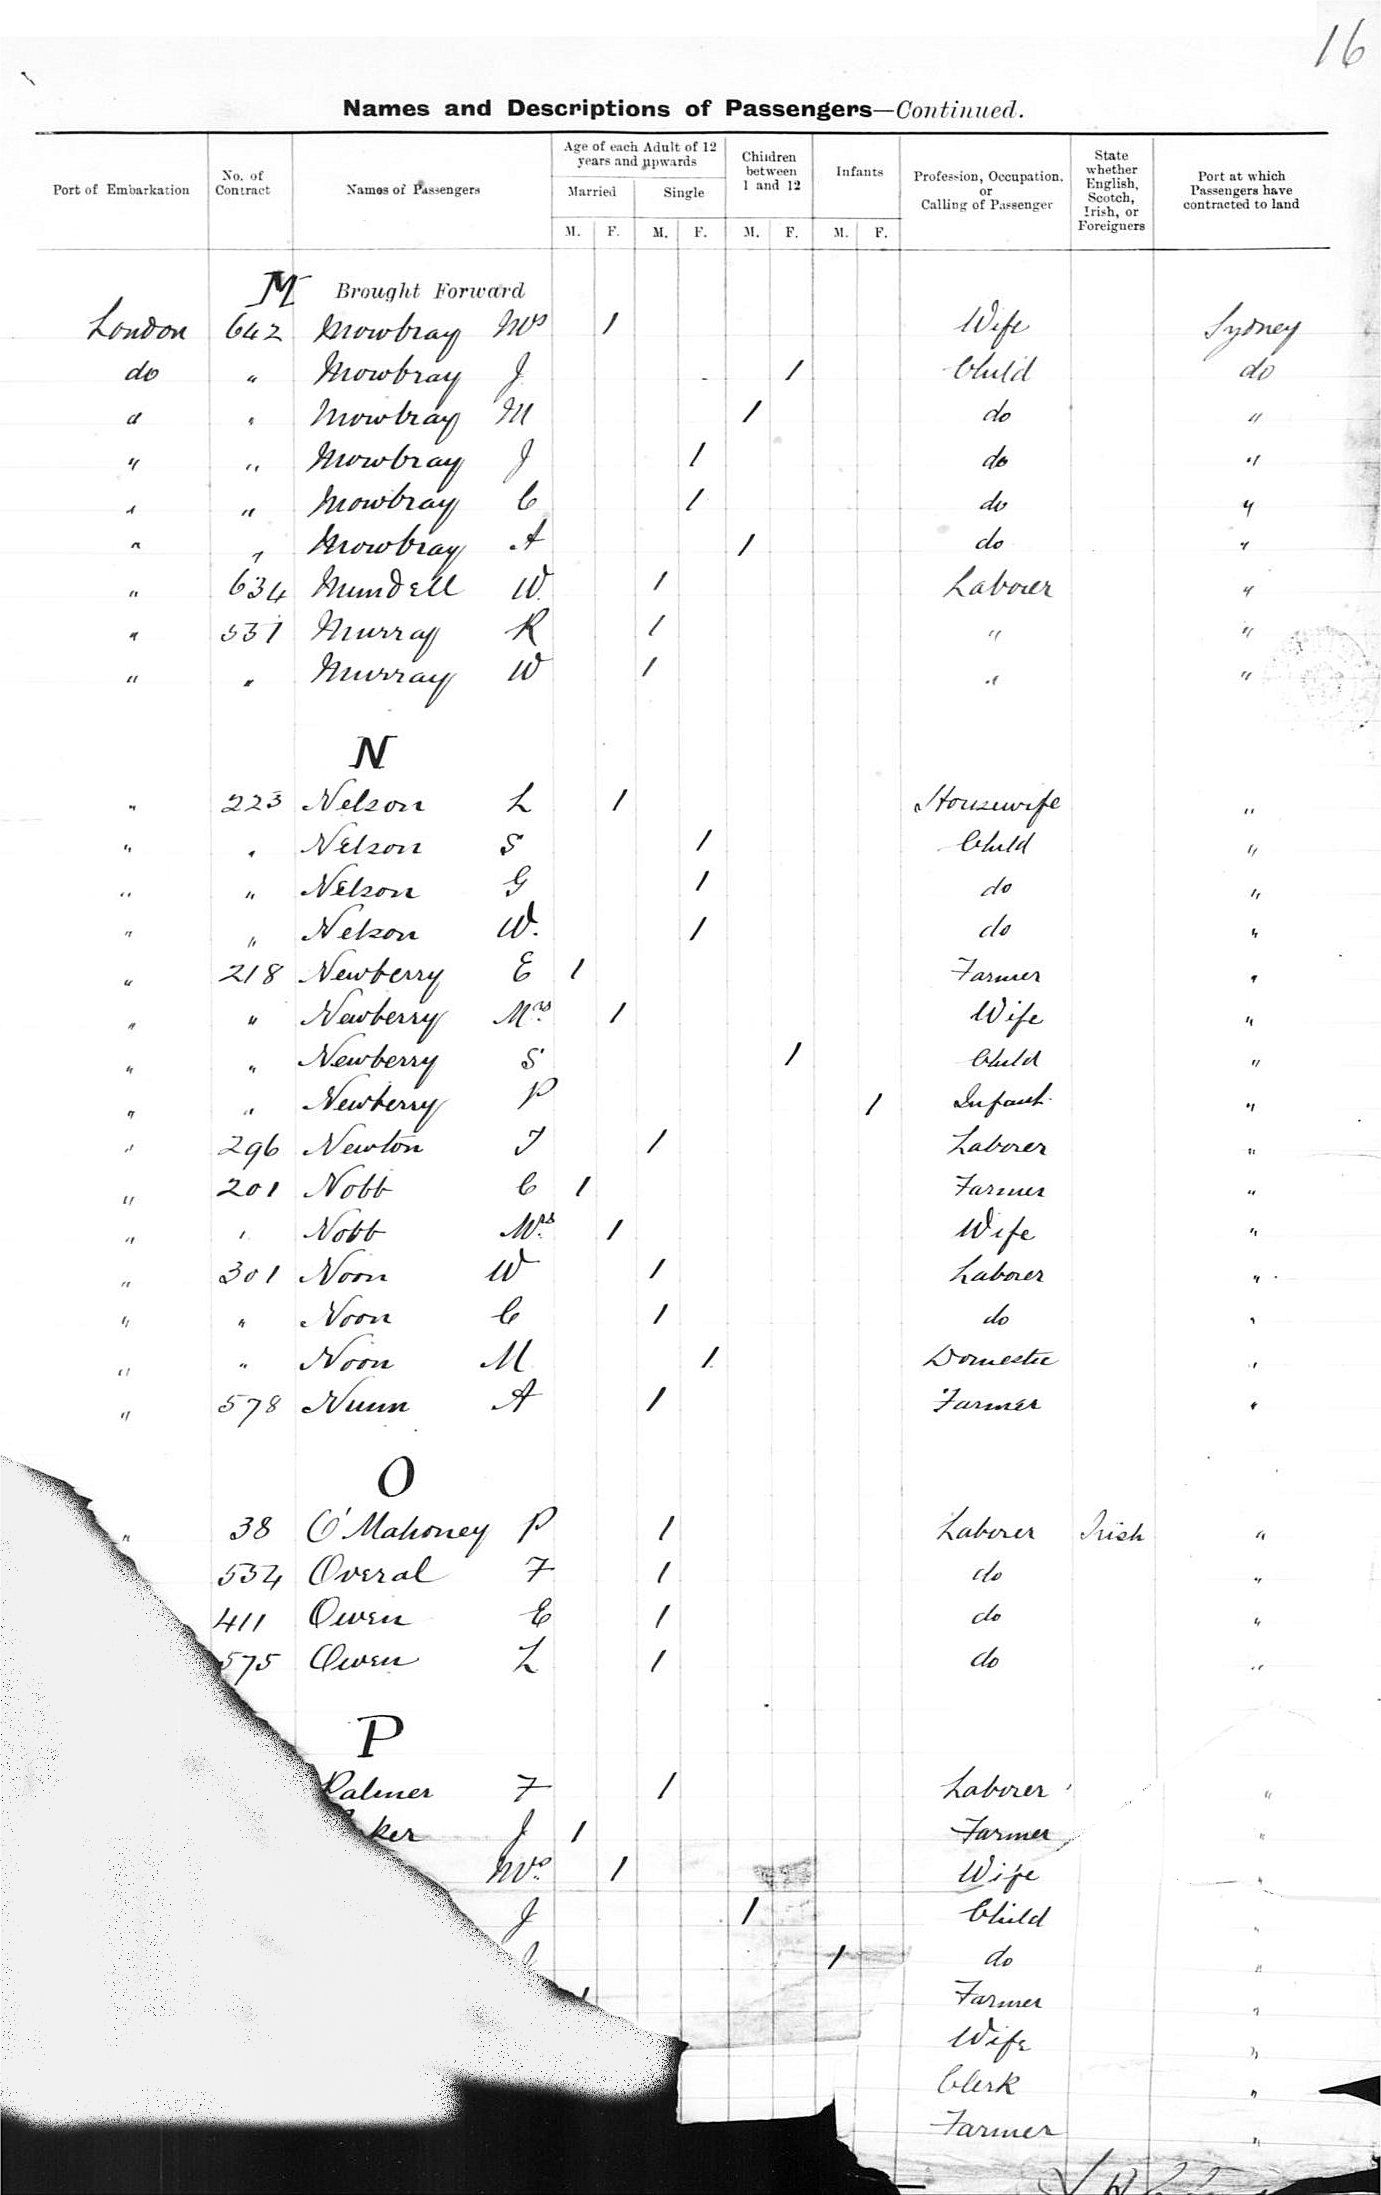 16
Names and Descriptions of Passengers—Continued.
Port of Embarkation
No. of Contract
Names of Passengers
Age of each Adult of 12 years and upwards
Married
Single
Children between 1 and 12
Infants
M. F. M. F. M. F. M. F.
Profession, Occupation, or Calling of Passenger
State whether English, Scotch, Irish, or Foreigners
Port at which Passengers have contracted to land
M Brought Forward
London 642 Mowbray Mrs 1 Wife Sydney
do " Mowbray J 1 Child do
" " Mowbray M 1 do "
" " Mowbray J 1 do "
" " Mowbray C 1 do "
" " Mowbray A 1 do "
" 634 Mundell W. 1 Laborer "
" 531 Murray R 1 " "
" " Murray W 1 " "
N
" 223 Nelson L 1 Housewife "
" " Nelson S 1 Child "
" " Nelson G 1 do "
" " Nelson W. 1 do "
" 218 Newberry E 1 Farmer "
" " Newberry Mrs 1 Wife "
" " Newberry S 1 Child "
" " Newberry P 1 Infant "
" 296 Newton J 1 Laborer "
" 201 Nobb C 1 Farmer "
" " Nobb Mrs 1 Wife "
" 301 Noon W 1 Laborer "
" " Noon C 1 do "
" " Noon M 1 Domestic "
" 578 Nunn A 1 Farmer "
O
" 38 O'Mahoney P 1 Laborer Irish "
534 Overal F 1 do "
411 Owen E 1 do "
575 Owen L 1 do "
P
Palmer F 1 Laborer "
ker J 1 Farmer "
Mrs 1 Wife "
J 1 Child "
1 do "
1 Farmer "
Wife "
Clerk "
Farmer "